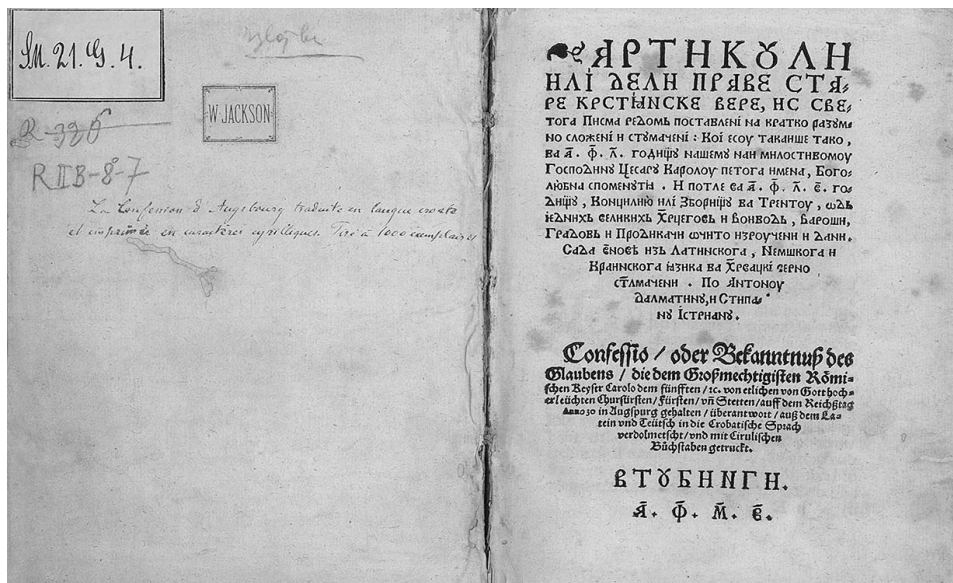 SM. 21. G. 4.
W. JACKSON
R-326
R II B-8-7
La Confession d'Augsbourg traduite en langue croate
et imprimée en caractères cyrilliques. Tiré à 1000 exemplaires
ꙖРТИКꙊЛИ
ИЛІ ДЕЛИ ПРАВЕ СТА⸗
РЕ КРСТꙖНСКЕ ВЕРЕ, ИС СВЕ⸗
тога Писма редомь поставлені на кратко разумь
но сложені и стумачені : Кої есоу таканше тако,
ва а҃. ф҃. л҃. годищꙋ нашему наи милостивомоу
Господинꙋ Цесарꙋ Каролоу петога имена, Бого⸗
любна споменути. И потле ва а҃. ф҃. л҃. е҃. го⸗
дищꙋ, Концилию илі Зборищꙋ ва Тренту, ѡдь
єдинихь великихь Херцеговь и Воиводь, Вароши,
Градовь и Продикачи очито изроучени и дани.
Сада єновь изь Латинскога, Немшкога и
Краинскога ꙗзика ва Хрвацки верно
стлмачени. По Антоноу
Далматинꙋ, и Стипа⸗
нꙋ Істриꙗнꙋ.
Confessio / oder Bekanntnuß des
Glaubens / die dem Großmechtigisten Römi⸗
schen Keyser Carolo dem fünfften / ꝛc. von etlichen von Gott hoch⸗
erleüchten Churfürsten / Fürsten / vñ Stetten / auff dem Reichßtag
Anno 30 in Augspurg gehalten / überantwort / auß dem La⸗
tein vnd Teütsch in die Crobatische Sprach
verdolmetscht / vnd mit Cirulischen
Bůchstaben getruckt.
ВТꙊБИНГИ.
А҃. Ф҃. М҃. Е҃.